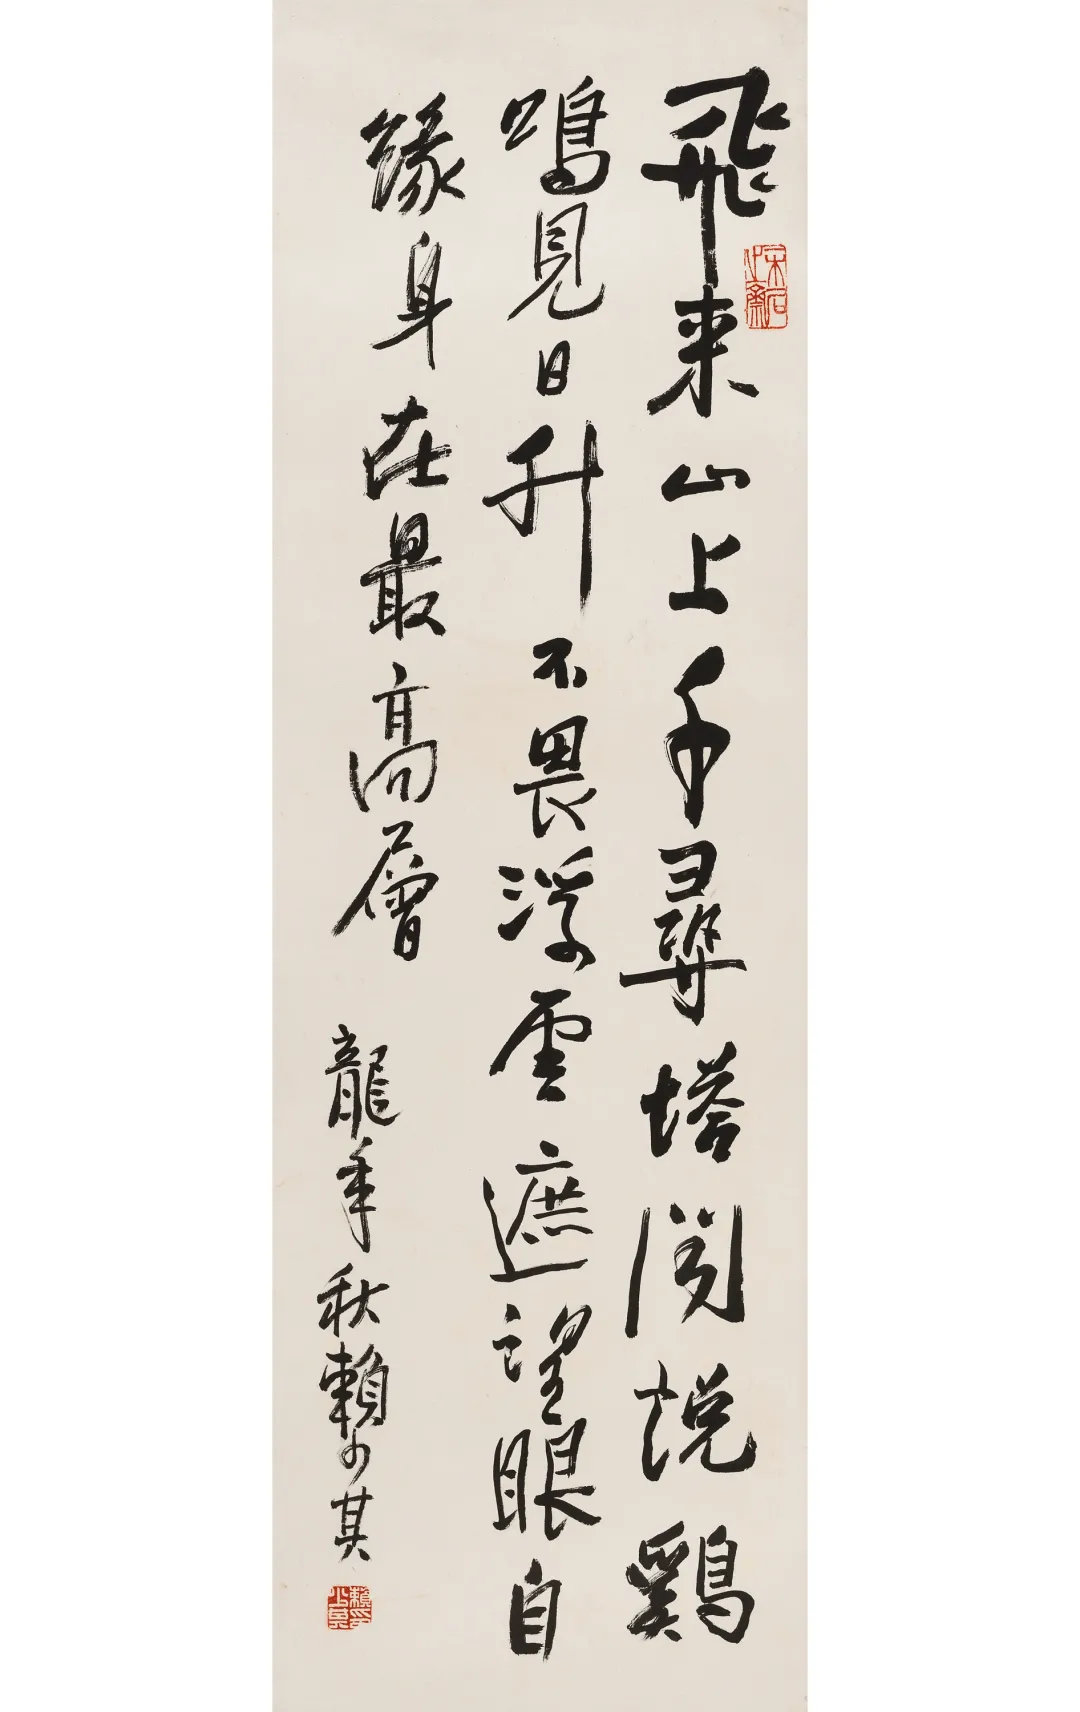 飛来山上千尋塔闻説鷄
鳴見日升不畏浮雲遮望眼自
緣身在最高層
龍年秋賴少其